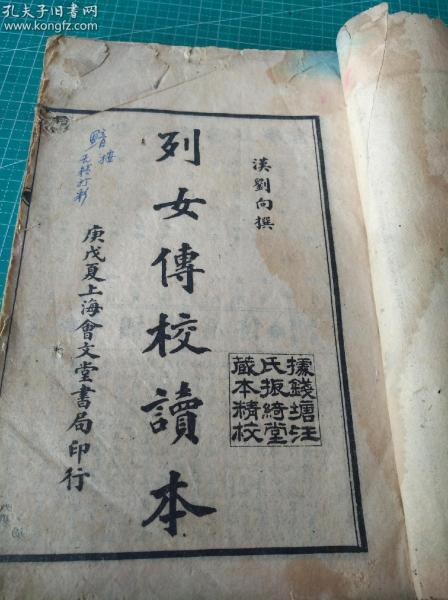 孔夫子旧书网
www.kongfz.com
漢劉向撰
據錢塘汪
氏振綺堂
藏本精校
列女傳校讀本
庚戌夏上海會文堂書局印行